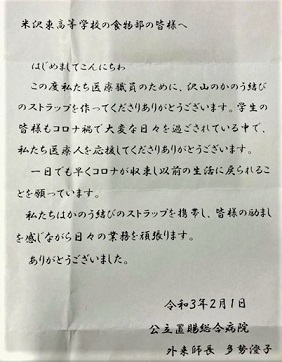 米沢東高等学校の食物部の皆様へ
はじめましてこんにちわ
この度私たち医療職員のために、沢山のかのう結び
のストラップを作ってくださりありがとうございます。学生の
皆様もコロナ禍で大変な日々を過ごされている中で、
私たち医療人を応援してくださりありがとうございます。
一日でも早くコロナが収束し以前の生活に戻られるこ
とを願っています。
私たちはかのう結びのストラップを携帯し、皆様の励まし
を感じながら日々の業務を頑張ります。
ありがとうございました。
令和3年2月1日
公立置賜総合病院
外来師長 多勢澄子